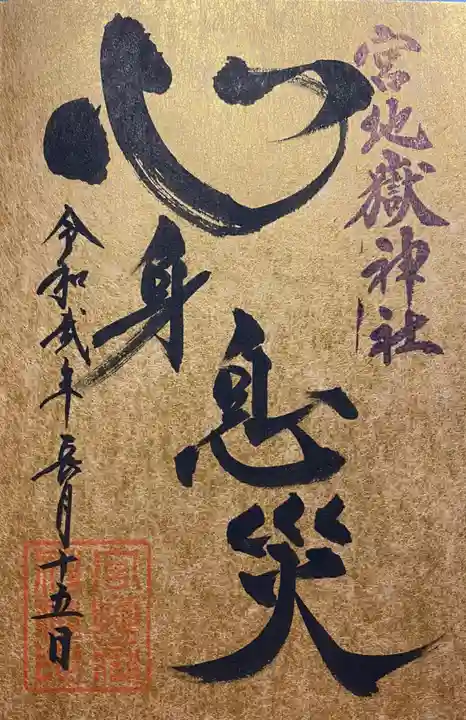 宮地嶽神社
心身息災
令和貮年長月十五日